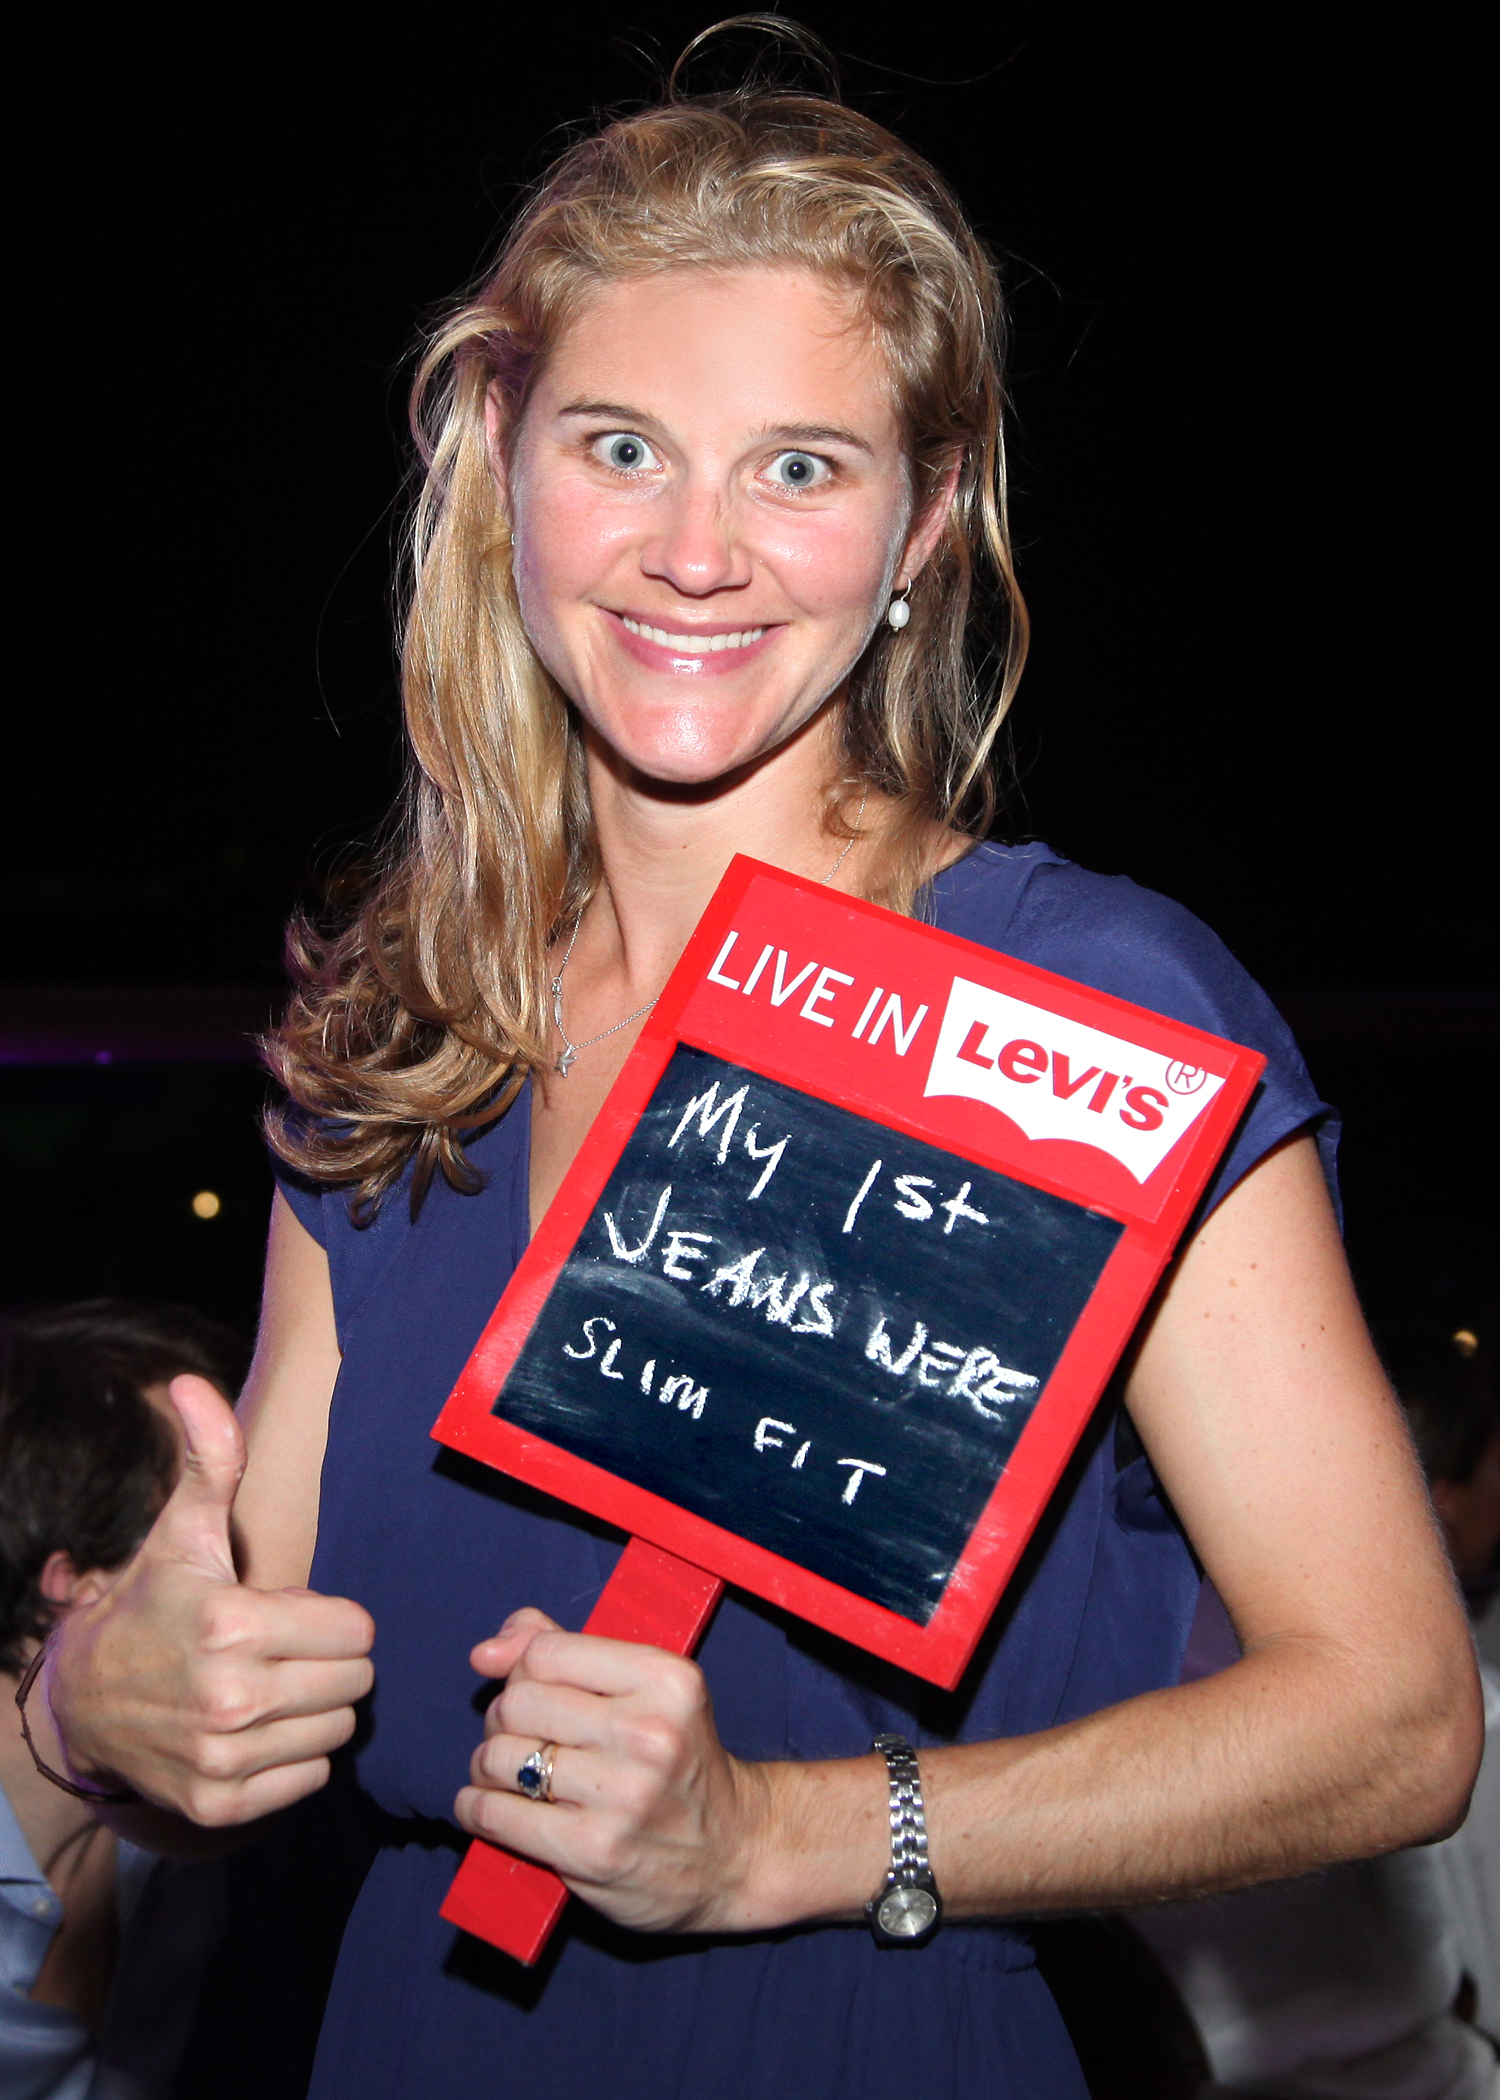 LIVE IN Levi's®
My 1st
JEANS WERE
SLIM FIT